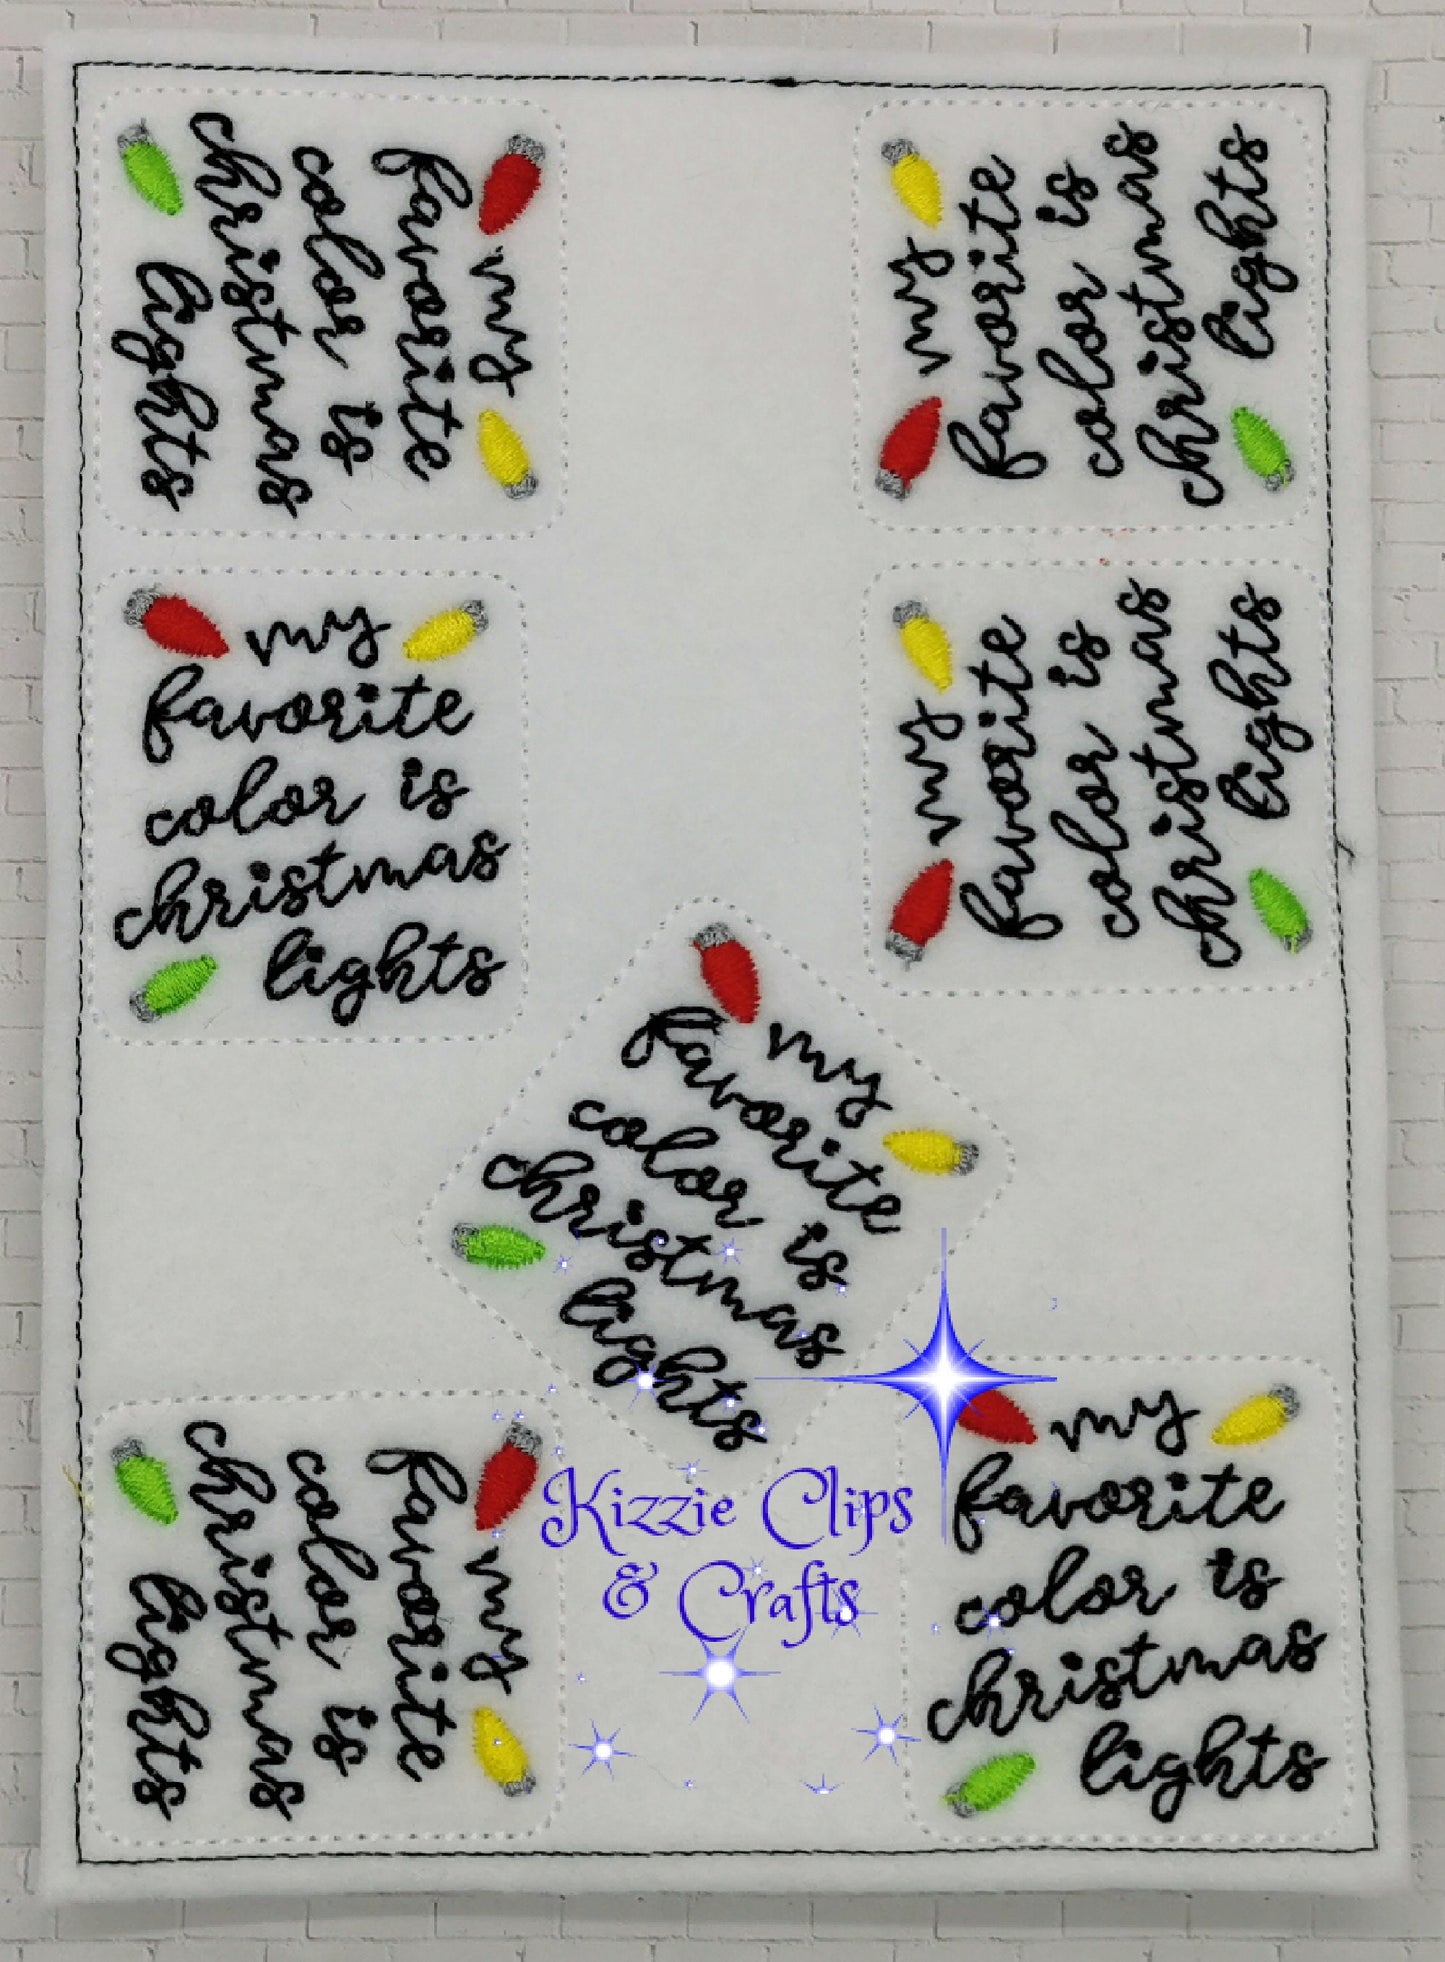 my
favorite
color is
christmas
lights
my
favorite
color is
christmas
lights
my
favorite
color is
christmas
lights
my
favorite
color is
christmas
lights
my
favorite
color is
christmas
lights
my
favorite
color is
christmas
lights
my
favorite
color is
christmas
lights
Kizzie Clips
& Crafts